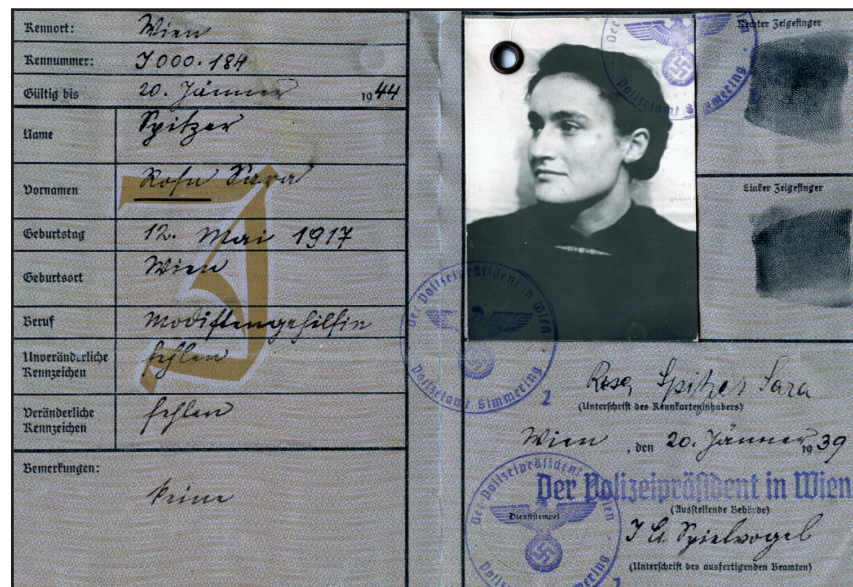 Kennort: Wien
Kennummer: J 000·184
Gültig bis 20. Jänner 1944
Name Spitzer
Vornamen Rosa Sara
Geburtstag 12. Mai 1917
Geburtsort Wien
Beruf Modistengehilfin
Unveränderliche Kennzeichen fehlen
Veränderliche Kennzeichen fehlen
Bemerkungen:
keine
J
Rechter Zeigefinger
Linker Zeigefinger
Der
Polizeiamt Simmering
Der Polizeipräsident in Wien
Polizeiamt Simmering
2
Rosa Spitzer Sara
(Unterschrift des Kennkarteninhabers)
Wien, den 20. Jänner 1939
Der Polizeipräsident in Wien
(Ausstellende Behörde)
Der Polizeipräsident in Wien
Dienststempel
Polizeiamt Simmering
1
Spielvogel
(Unterschrift des ausfertigenden Beamten)